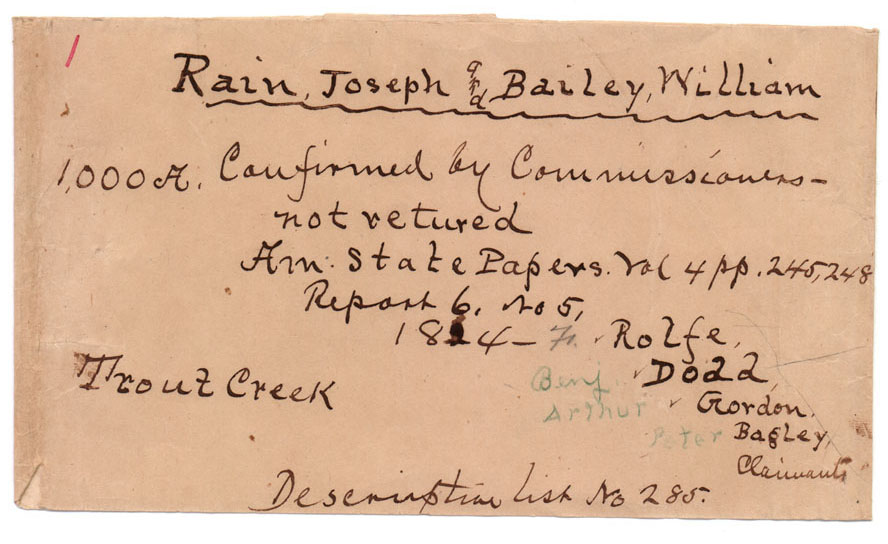 1
Rain, Joseph and Bailey, William
1,000 A. Confirmed by Commissioners-
not retured
Am. State Papers. Vol 4 pp. 245, 248
Report 6. No 5,
1824- Rolfe,
Benj. Dodd,
Trout Creek
Arthur Gordon.
Peter Bagley,
Claimants
Descriptive list No 285.